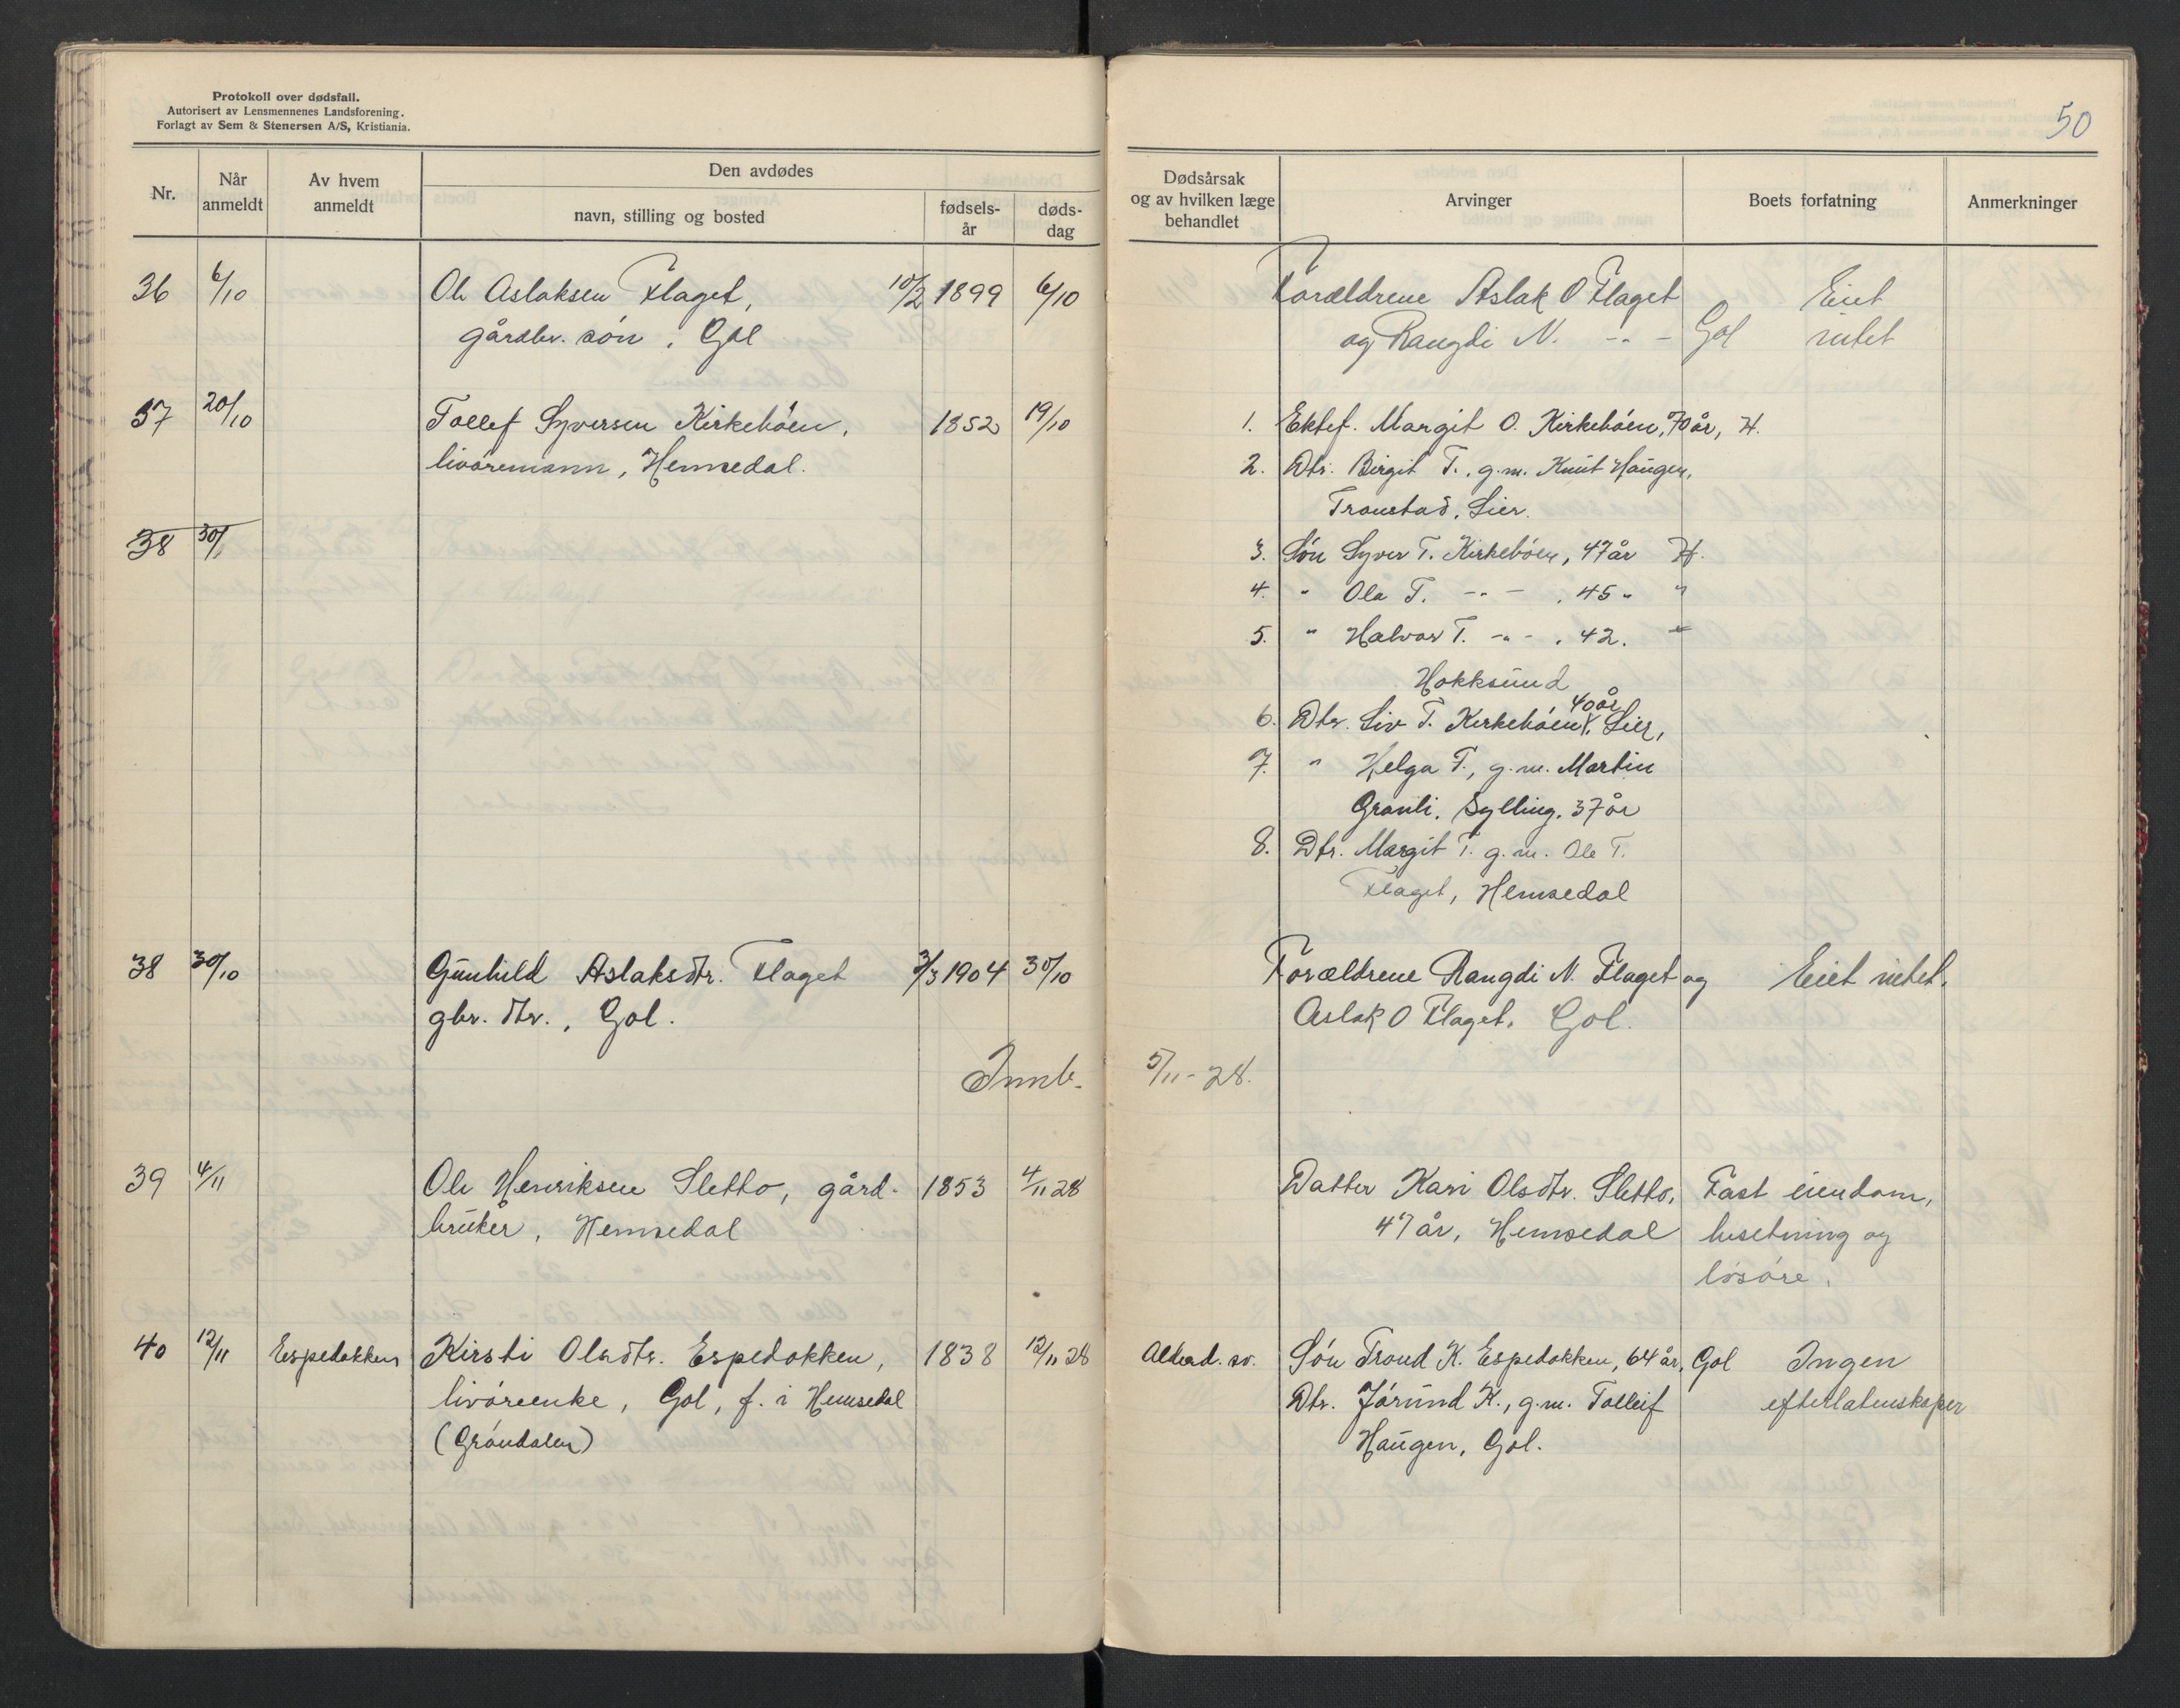 Protokoll over dødsfall.
Autorisert av Lensmennenes Landsforening.
Forlagt av Sem & Stenersen A/S, Kristiania.
50
Nr.
Når anmeldt
Av hvem anmeldt
Den avdødes
navn, stilling og bosted
fødsels-år
døds-dag
Dødsårsak og av hvilken læge behandlet
Arvinger
Boets forfatning
Anmerkninger
36 6/10 Ole Aslaksen Flaget, 10/2 1899 6/10 Forældrene Aslak O Flaget Eiet
gårdbr. søn, Gol og Rangdi N. -"- Gol intet
37 20/10 Tollef Syversen Kirkebøen, 1852 19/10 1. Ektef. Margit O. Kirkebøen, 70 år, H.
livøremann, Hemsedal. 2. Dtr. Birgit T., g.m. Knut Haugen,
Tronstad, Lier.
38 30/ 3. Søn Syver T. Kirkebøen, 47 år H.
4. " Ola T. -"- , 45 " "
5. " Halvor T. -"- , 42. "
Hokksund
40 år
6. Dtr. Liv T. Kirkebøen, Lier,
7. " Helga T., g.m. Martin
Granli, Sylling. 37 år
8. Dtr. Margit T. g.m. Ole T.
Flaget, Hemsedal
38 30/10 Gunhild Aslaksdtr. Flaget 3/3 1904 30/10 Forældrene Rangdi N. Flaget og Eiet intet.
gbr. dtr., Gol. Aslak O Flaget, Gol.
Innb. 5/11-28.
39 4/11 Ole Henriksen Sletto, gård- 1853 4/11 28 Datter Kari Olsdtr. Sletto, Fast eiendom,
bruker, Hemsedal 47 år, Hemsedal busetning og
løsøre.
40 12/11 Espedokken Kirsti Olsdtr. Espedokken, 1838 12/11 28 Alderd. sv. Søn Trond K. Espedokken, 64 år, Gol Ingen
livøreenke, Gol, f. i Hemsedal Dtr. Jørund K., g.m. Tolleif efterlatenskaper
(Grøndalen) Haugen, Gol.